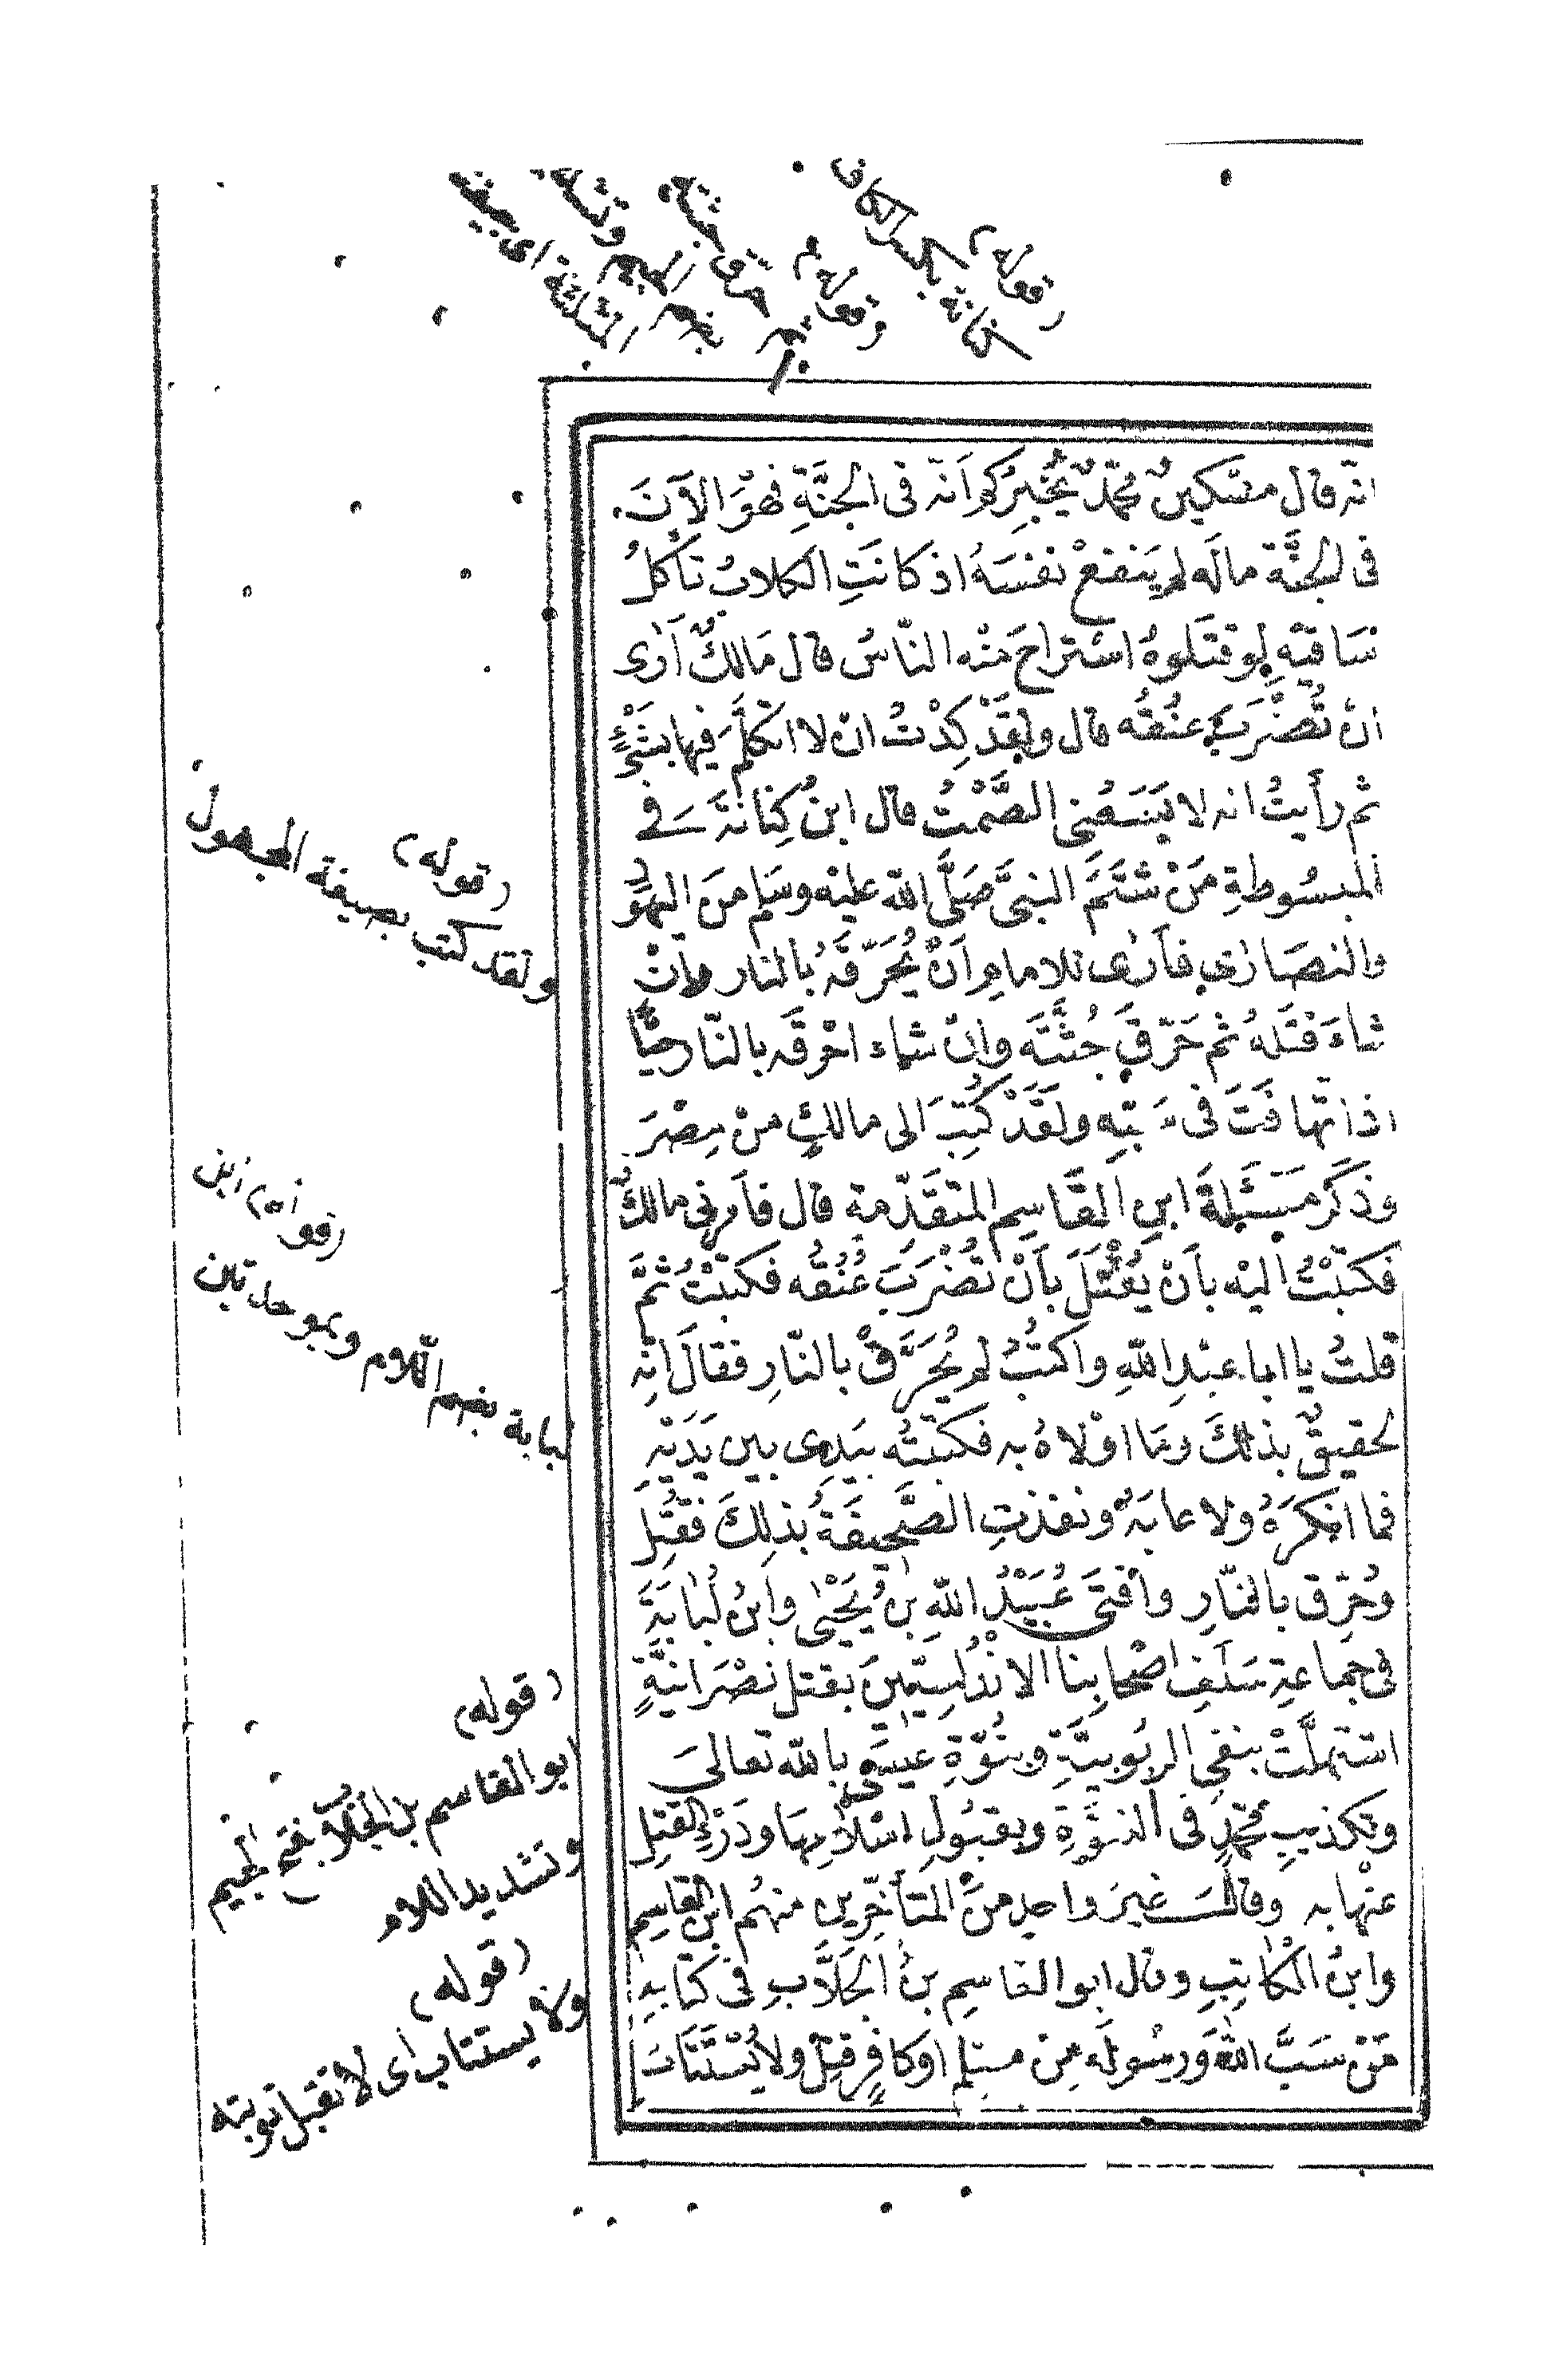 (قوله)
كنانة بكسر الكاف
وقوله
ثم حرق جثته
بفتح الجيم وتشديد
المثلثة اى جيفته
انّه قال مسْكينٌ محمّدٌ يُخْبِرُكم اَنّه فى الجنَّةِ فهوَ الآنَ
فى الجنَّة مالَه لم يَنفعْ نفسَهُ اذ كانَتِ الكلابُ تأكلُ
سَاقيْهِ لو قتَلوهُ استراحَ منْه النّاسُ قال مَالكٌ اَرٰى
انْ تُضْرَبَ عنُقُه قال ولقَدْ كِدْتُ انْ لا اتكلَّمَ فيها بشَىْءٍ
ثم رأيتُ انه لا يَسَعُنى الصَّمْتُ قال ابنُ كِنانَةَ فى
المبسُوطةِ مَنْ شتَمَ النبىَّ صَلَّى اللّه عليْه وسَلم منَ اليهوَدِ
والنصَارٰى فأرٰى للامامِ اَنْ يُحَرّقَهُ بالنار وانْ
شاءَ قتَلهُ ثم حَرّقَ جُثَّتَه وانْ شاء احْرقَه بالنّار حيًّا
اذا تهافَتَ فى سَبّهِ ولَقَدْ كُتِبَ الى مالكٍ منْ مِصْرَ
وذكَرَ مَسْئَلةَ ابنِ القَاسِمِ المتقَدّمة قال فأمرنِى مالكٌ
فكتبْتُ اليْه بأنْ يُقْتَلَ بأنْ تُضْرَبَ عُنُقُه فكتبْتُ ثمَّ
قلتُ يا ابا عبْدِ اللّهِ واكتُبُ ثم يُحرَّقْ بالنّارِ فقالَ انّه
لحقيقٌ بذلكَ ومَا اوْلاهُ به فكتَبْتُه بيَدِى بين يَدَيْهِ
فما انكرَهُ ولا عابَهُ ونفذتِ الصَّحيفَةُ بذلِكَ فقُتِلَ
وحُرّق بالنّارِ وأفتَى عُبَيْدُ اللّهِ بنُ يَحْيٰى وابنُ لُبَابَةَ
فى جماعةِ سَلَفِ اصْحابِنا الانْدَلسِيّينَ بقتل نصْرَانيَّةٍ
استهلَّتْ بنفىِ الربُوبيَّةِ وبنُوّةِ عيسَى باللّه تعالى
وتكذيبِ محمّدٍ فى النبُوّةِ وبقبُولِ اسْلامِهَا ودَرْءِ القتلِ
عنْها به وقالَ غيرُ واحدٍ منَ المتأخّرين منهُم ابنُ القاسِمِ
وابنُ الكاتِبِ وقال ابو القاسِمِ بنُ الجَلَّابِ فى كتابهِ
مَنْ سَبَّ اللّهَ وَرسُولَه مِنْ مسْلم اوكافٍر قتِلَ ولا يُسْتَتَابُ
(قوله)
ولقد كتب بصيغة المجهول
(قوله) ابن
لبابة بضم اللّام وبموحدتين
(قوله)
ابو القاسم بن الجلّاب بفتح الجيم
وتشديد اللام
(قوله)
ولا يستتاب اى لا تقبل توبته